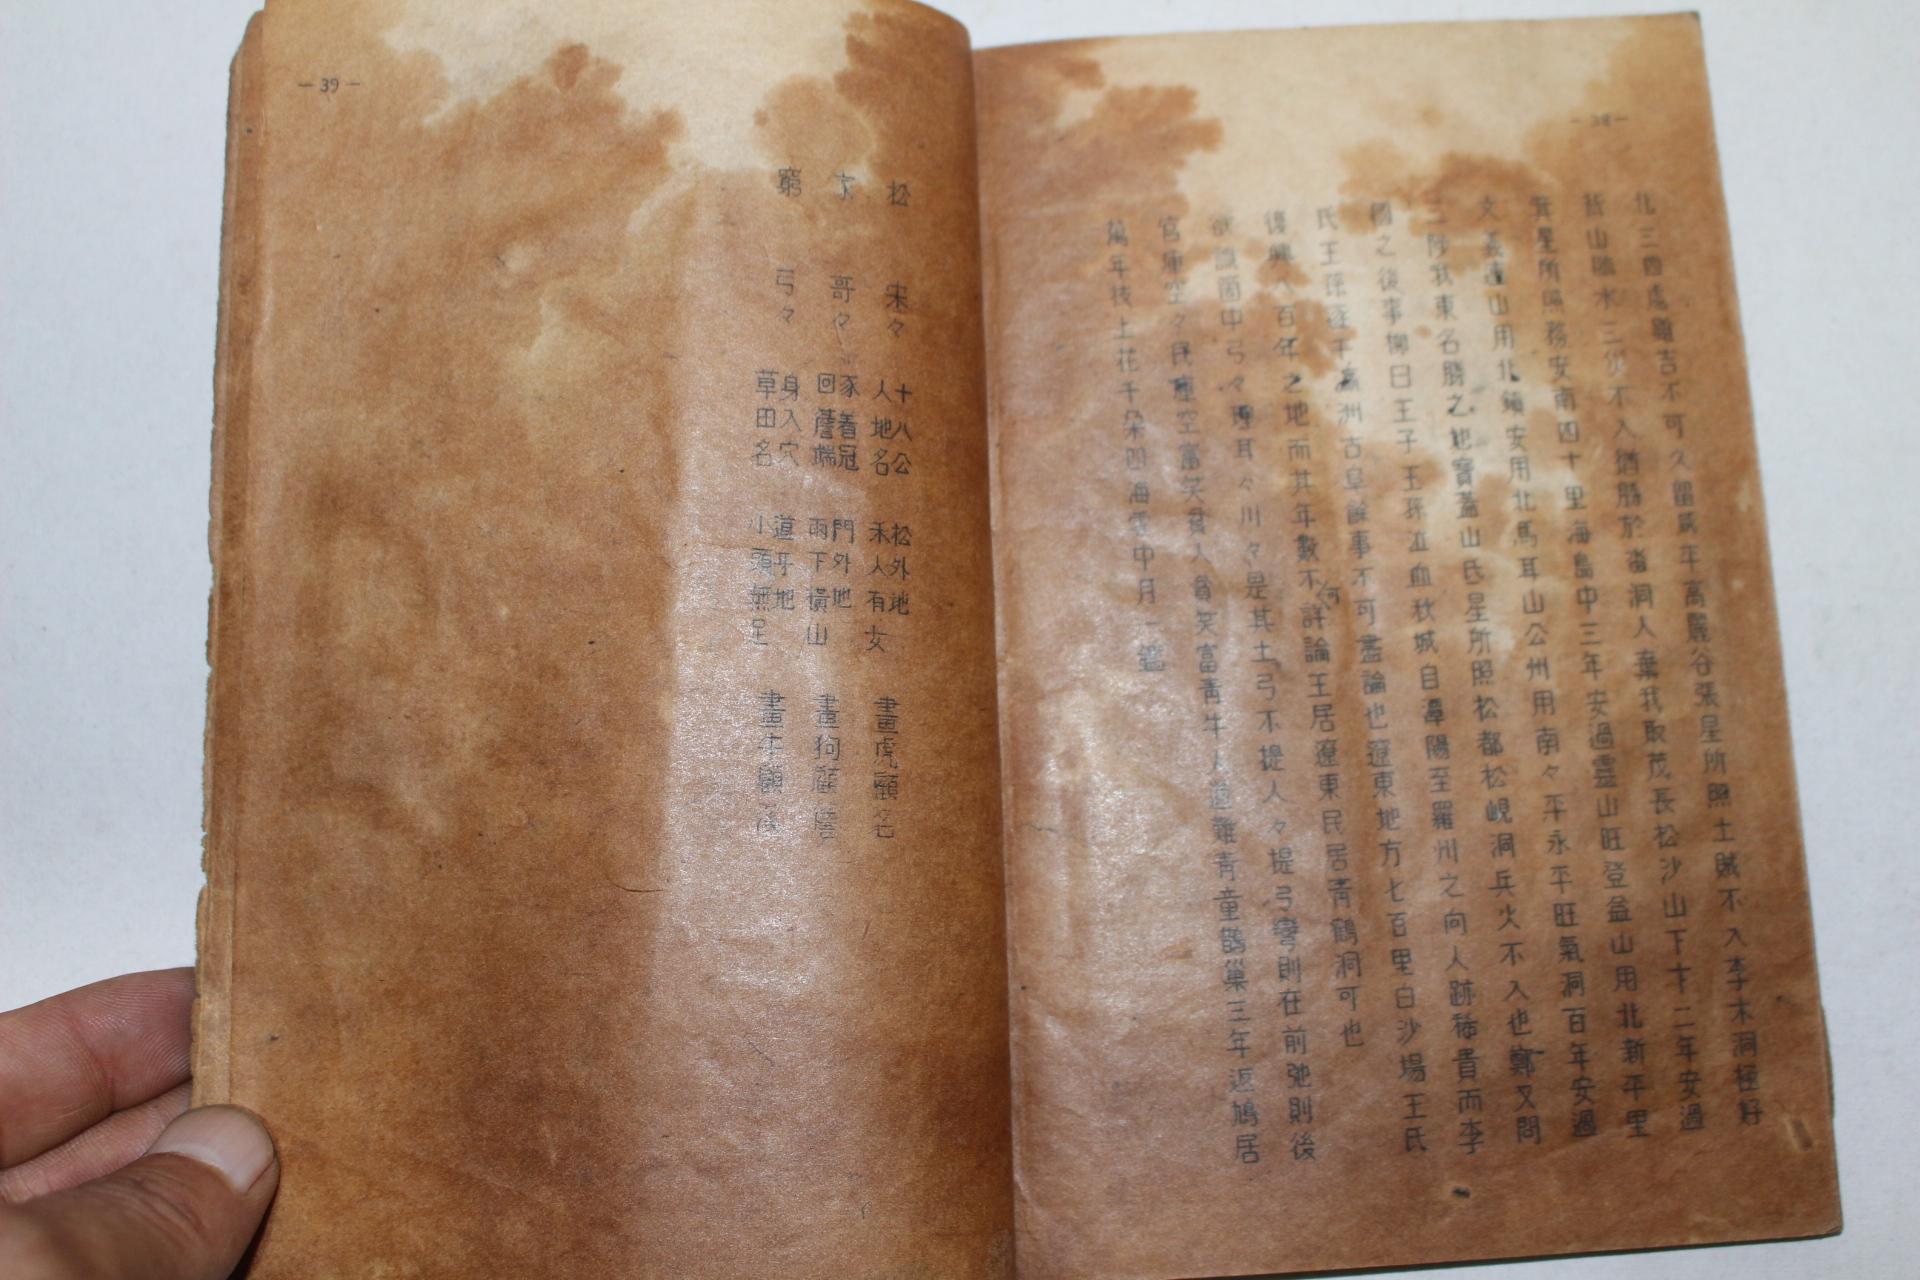 — 38 —
北三四處雖吉不可久留 年高麗谷張星所照土賊不入李木洞極好
山臨水三災不入猶勝於 洞人棄我取茂長松沙山下十二年安過
箕星所照務安南四十里海島中三年安過霊山旺登益山用北新平里
文義 山用北鎮安用北馬耳山公州用南々平永平旺氣洞百年安過
三陟我東名勝之地寶蓋山氏星所照松都松峴洞兵火不入也鄭又問
國之後事柳曰王子王孫泣血秋城自潭陽至羅州之向人跡稀貴而李
氏王孫 于 洲古阜餘事不可盡論也遼東地方七百里白沙場王氏
復興八百年之地而其年數不何詳論王居遼東民居青鶴洞可也
欲識國中弓々理耳々川々是其土弓不提人々提弓彎則在前弛則後
官庫空々民庫空富笑貧人貧笑富青牛人 難青童鵲巢三年返鳩居
萬年枝上花千朶四海雲中月一鑑
— 39 —
松 宋々 十八公 人地名 松外地 禾人有女 畫虎顧名
哥々 豕着冠 回簷端 門外地 雨下橫山 畫狗顧簷
窮 弓々 身入穴 草田名 道乎地 小頭無足 畫牛顧溪